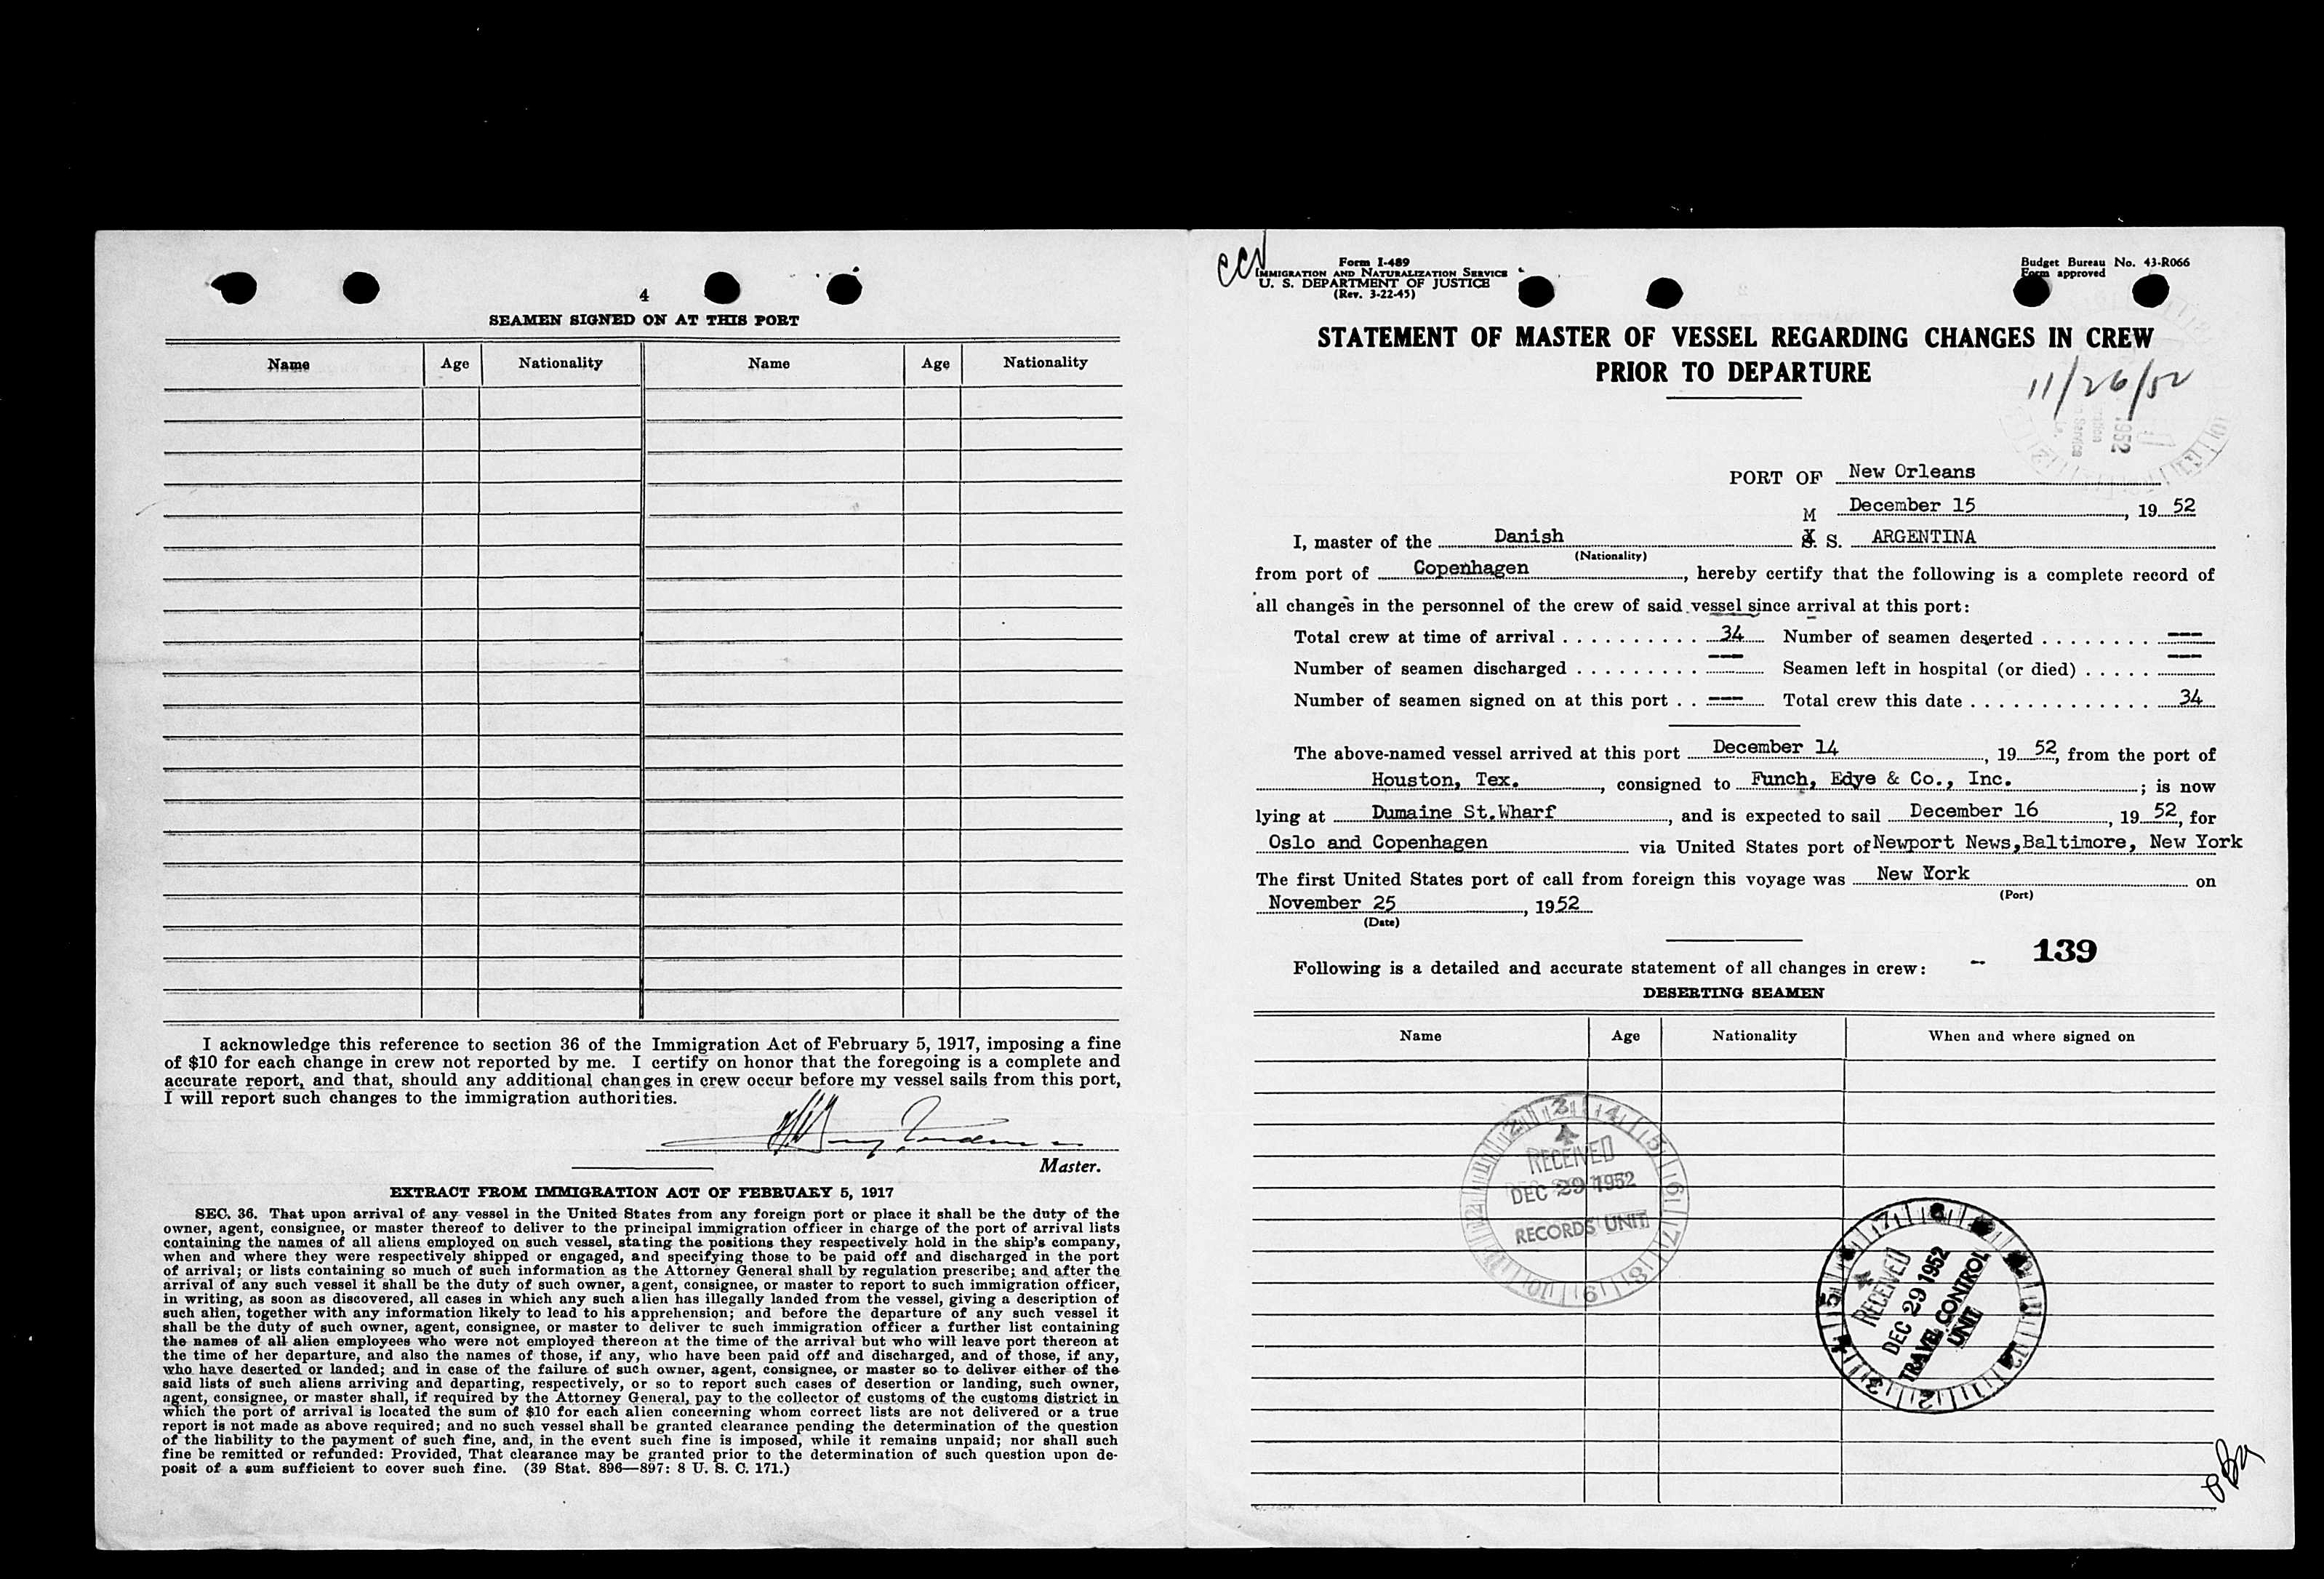 4
SEAMEN SIGNED ON AT THIS PORT
Name Age Nationality Name Age Nationality
I acknowledge this reference to section 36 of the Immigration Act of February 5, 1917, imposing a fine
of $10 for each change in crew not reported by me. I certify on honor that the foregoing is a complete and
accurate report, and that, should any additional changes in crew occur before my vessel sails from this port,
I will report such changes to the immigration authorities.
Master.
EXTRACT FROM IMMIGRATION ACT OF FEBRUARY 5, 1917
SEC. 36. That upon arrival of any vessel in the United States from any foreign port or place it shall be the duty of the
owner, agent, consignee, or master thereof to deliver to the principal immigration officer in charge of the port of arrival lists
containing the names of all aliens employed on such vessel, stating the positions they respectively hold in the ship's company,
when and where they were respectively shipped or engaged, and specifying those to be paid off and discharged in the port
of arrival; or lists containing so much of such information as the Attorney General shall by regulation prescribe; and after the
arrival of any such vessel it shall be the duty of such owner, agent, consignee, or master to report to such immigration officer,
in writing, as soon as discovered, all cases in which any such alien has illegally landed from the vessel, giving a description of
such alien, together with any information likely to lead to his apprehension; and before the departure of any such vessel it
shall be the duty of such owner, agent, consignee, or master to deliver to such immigration officer a further list containing
the names of all alien employees who were not employed thereon at the time of the arrival but who will leave port thereon at
the time of her departure, and also the names of those, if any, who have been paid off and discharged, and of those, if any,
who have deserted or landed; and in case of the failure of such owner, agent, consignee, or master so to deliver either of the
said lists of such aliens arriving and departing, respectively, or so to report such cases of desertion or landing, such owner,
agent, consignee, or master shall, if required by the Attorney General, pay to the collector of customs of the customs district in
which the port of arrival is located the sum of $10 for each alien concerning whom correct lists are not delivered or a true
report is not made as above required; and no such vessel shall be granted clearance pending the determination of the question
of the liability to the payment of such fine, and, in the event such fine is imposed, while it remains unpaid; nor shall such
fine be remitted or refunded: Provided, That clearance may be granted prior to the determination of such question upon de-
posit of a sum sufficient to cover such fine. (39 Stat. 896—897: 8 U. S. C. 171.)
Form I-489
IMMIGRATION AND NATURALIZATION SERVICE
U. S. DEPARTMENT OF JUSTICE
(Rev. 3-22-45)
Budget Bureau No. 43-R066
Form approved
STATEMENT OF MASTER OF VESSEL REGARDING CHANGES IN CREW
PRIOR TO DEPARTURE
11/26/52
PORT OF New Orleans
December 15, 19 52
M
I, master of the Danish S. S. ARGENTINA
(Nationality)
from port of Copenhagen, hereby certify that the following is a complete record of
all changes in the personnel of the crew of said vessel since arrival at this port:
Total crew at time of arrival . . . . . . . . . . 34 Number of seamen deserted . . . . . . . . ---
Number of seamen discharged . . . . . . . . . --- Seamen left in hospital (or died) . . . . . ---
Number of seamen signed on at this port . . --- Total crew this date . . . . . . . . . . . . . . 34
The above-named vessel arrived at this port December 14, 19 52, from the port of
Houston, Tex., consigned to Funch, Edye & Co., Inc.; is now
lying at Dumaine St. Wharf, and is expected to sail December 16, 19 52, for
Oslo and Copenhagen via United States port of Newport News, Baltimore, New York
The first United States port of call from foreign this voyage was New York on
(Port)
November 25, 1952
(Date)
139
Following is a detailed and accurate statement of all changes in crew: --
DESERTING SEAMEN
Name Age Nationality When and where signed on
RECEIVED
DEC 29 1952
RECORDS UNIT
RECEIVED
DEC 29 1952
TRAVEL CONTROL
UNIT